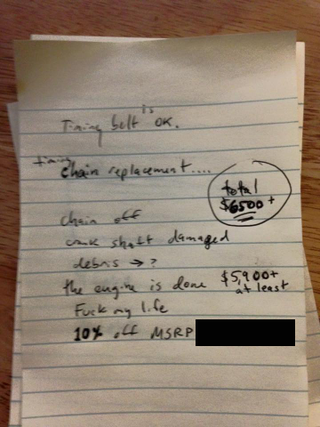 Timing belt is OK.
timing chain replacement....
total
$6500+
chain off
crank shaft damaged
debris → ?
the engine is done $5,900+
at least
Fuck my life
10% off MSRP